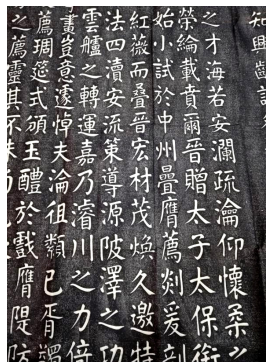 之才海若安瀾疏瀹仰懷柔之
榮綸載賁爾晉贈太子太保銜
始小試於中州疊膺薦剡爰剖
紅薇而疊晉宏材茂煥久邀特
法四瀆安流策導源陂澤之功
雲艫之轉運嘉乃濬川之力倍
畫豈意遽悼夫淪徂纇已胥蠲
薦琱筵式頒玉醴於戲膺隄防
之薦靈其不